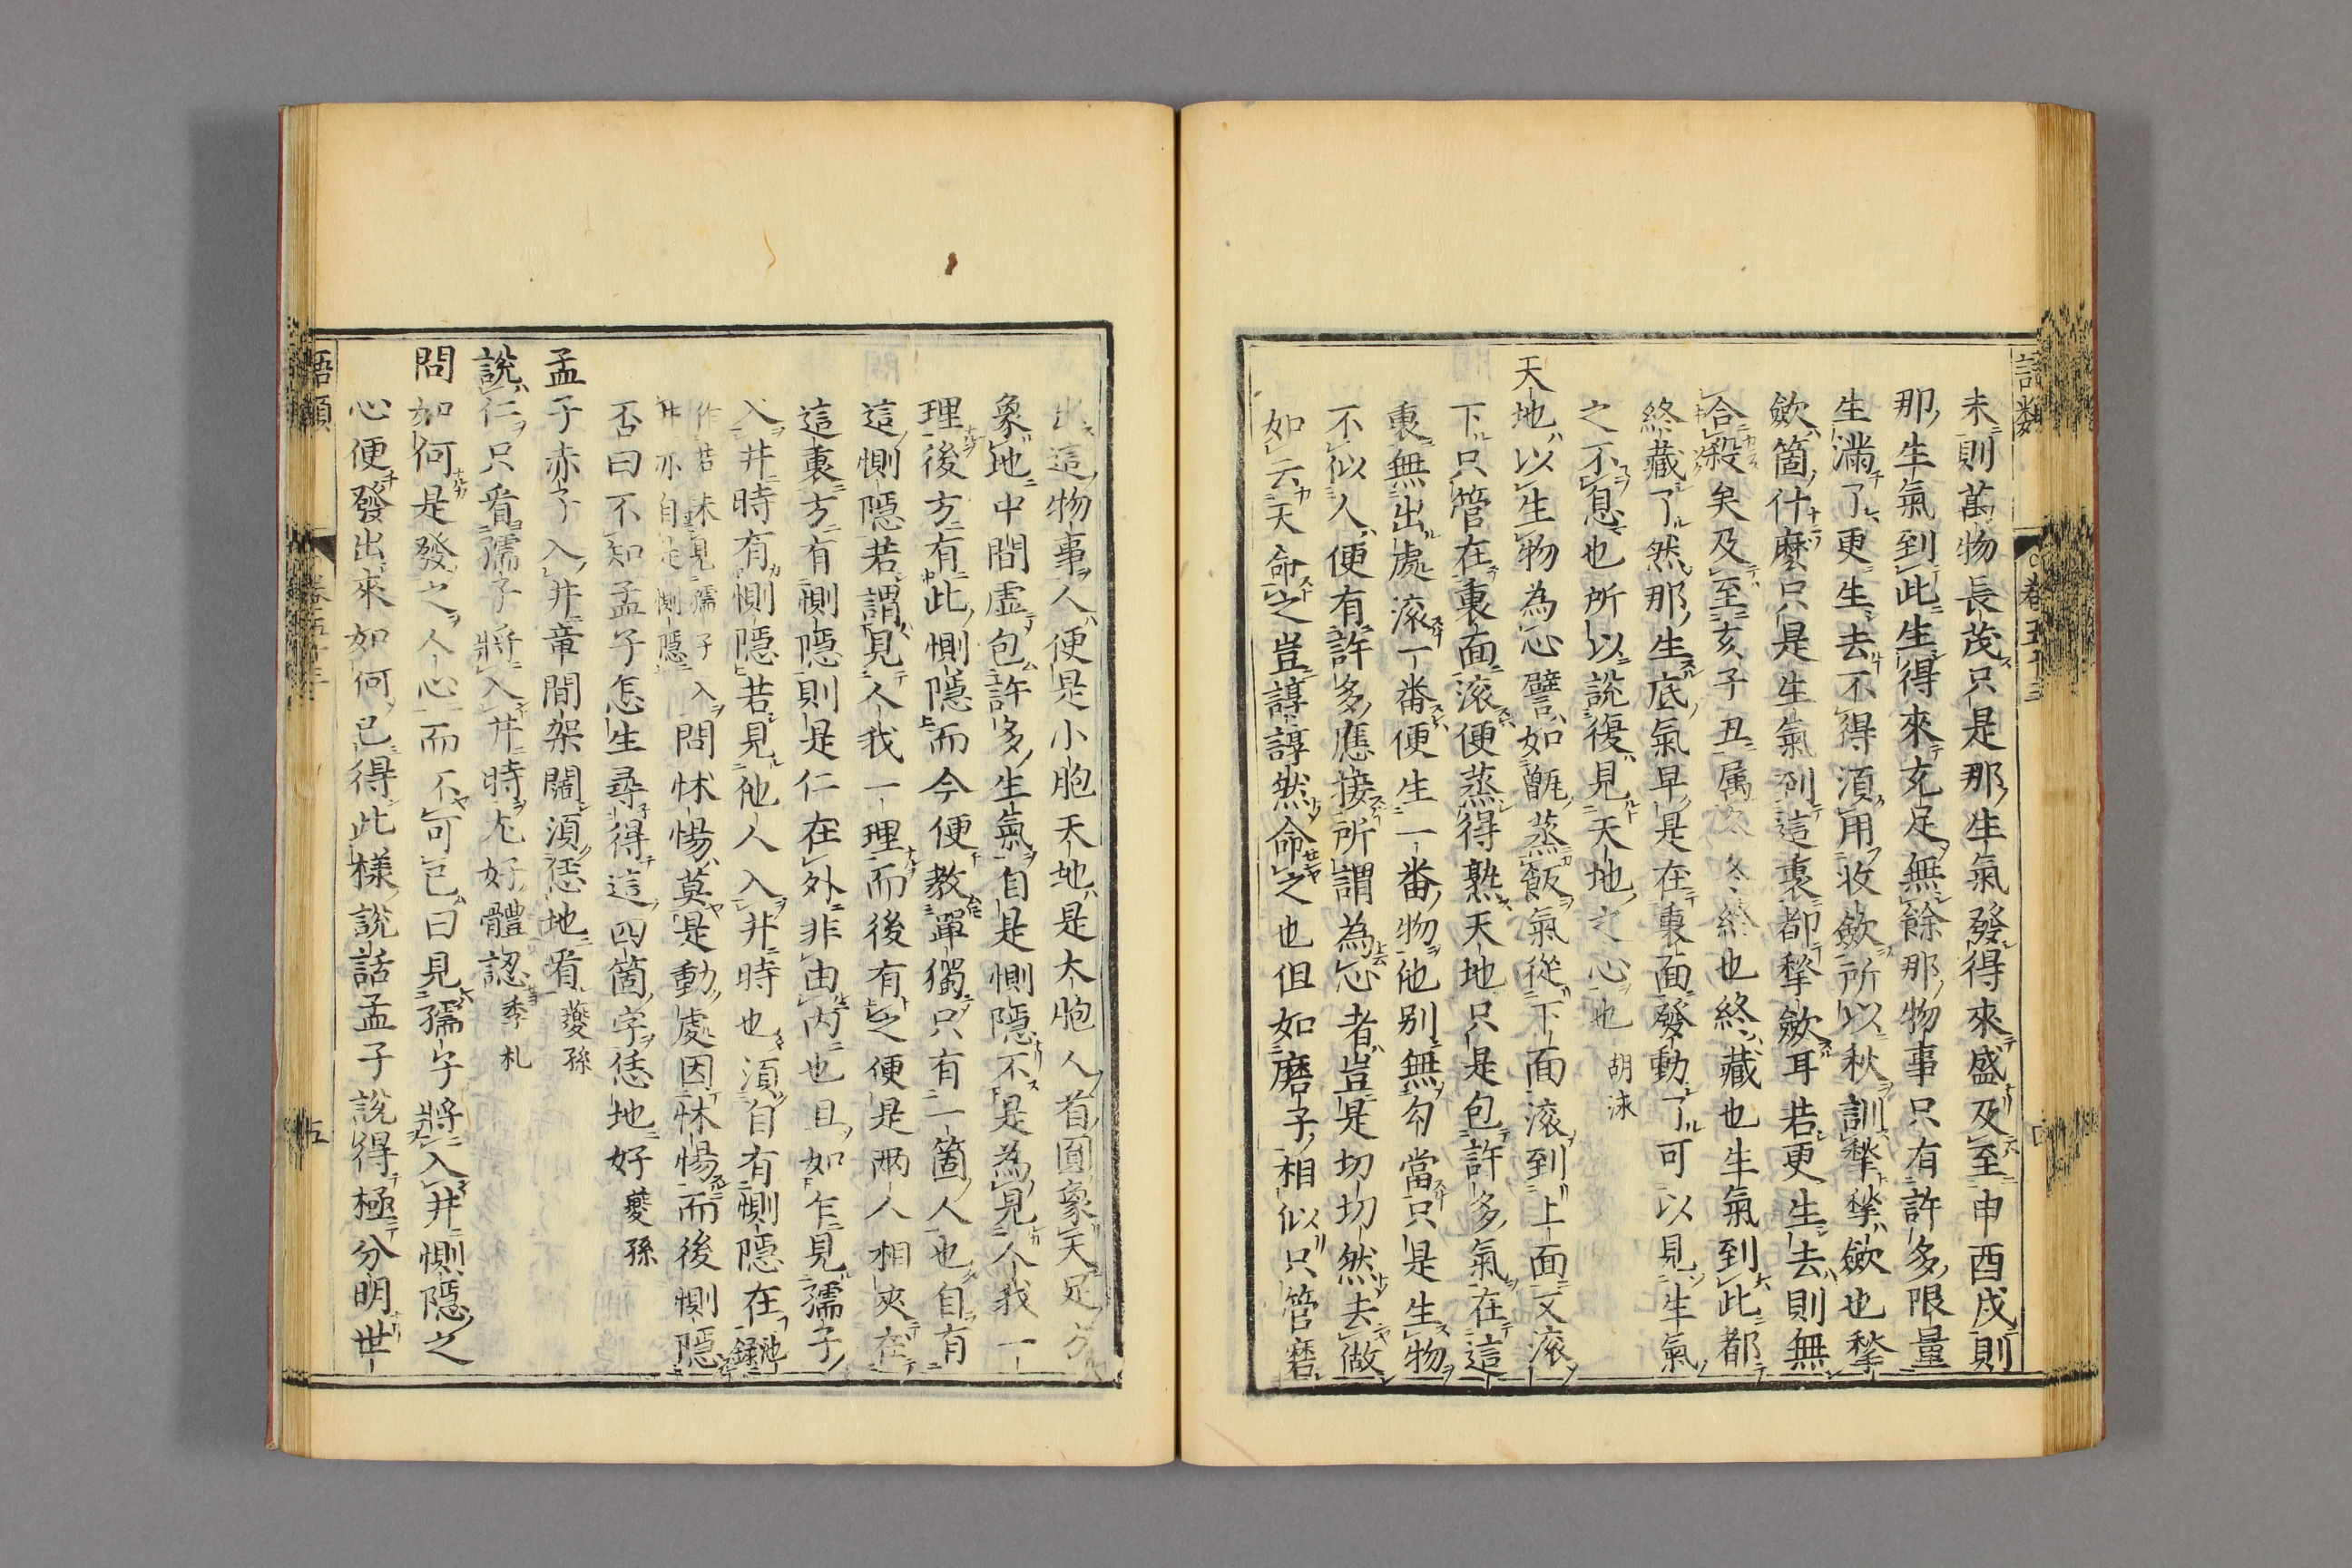 語類
卷五十三
未則萬物長茂只是那生氣發得來盛及至申酉戌則
那生氣到此生得來充足無餘那物事只有許多限量
生滿了更生去不得湏用收斂所以秋訓揫揫斂也揫
斂箇什麽只是生氣到這裏都揫斂耳若更生去則無
合殺矣及至亥子丑属冬冬終也終藏也生氣到此都
終藏了然那生底氣早是在裏面發動了可以見生氣
之不息也所以說復見天地之心也 胡泳
天地以生物為心譬如甑蒸飯氣從下面滚到上面又滚
下只管在裏面滚便蒸得熟天地只是包許多氣在這
裏無出處滚一番便生一番物他别無勾當只是生物
不似人便有許多應接所謂為心者豈是切切然去做
如云天命之豈諄諄然命之也但如磨子相似只管磨
出這物事人便是小胞天地是大胞人首圓象天足方
象地中間虚包許多生氣自是惻隠不是為見人我一
理後方有此惻隠而今便教單獨只有一箇人也自有
這惻隠若謂見人我一理而後有之便是兩人相夾在
這裏方有惻隠則是仁在外非由内也且如乍見孺子
入井時有惻隠若見他人入井時也湏自有惻隠在 池録
作若未見孺子入
井亦自是惻隠 問怵惕莫是動處因怵惕而後惻隠
否曰不知孟子怎生尋得這四箇字恁地好 夔孫
孟子赤子入井章間架闊湏恁地看 夔孫
說仁只看孺子將入井時尤好體認 季札
問如何是發之人心而不可已曰見孺子將入井惻隠之
心便發出來如何已得此様說話孟子說得極分明世
語類
卷五十三